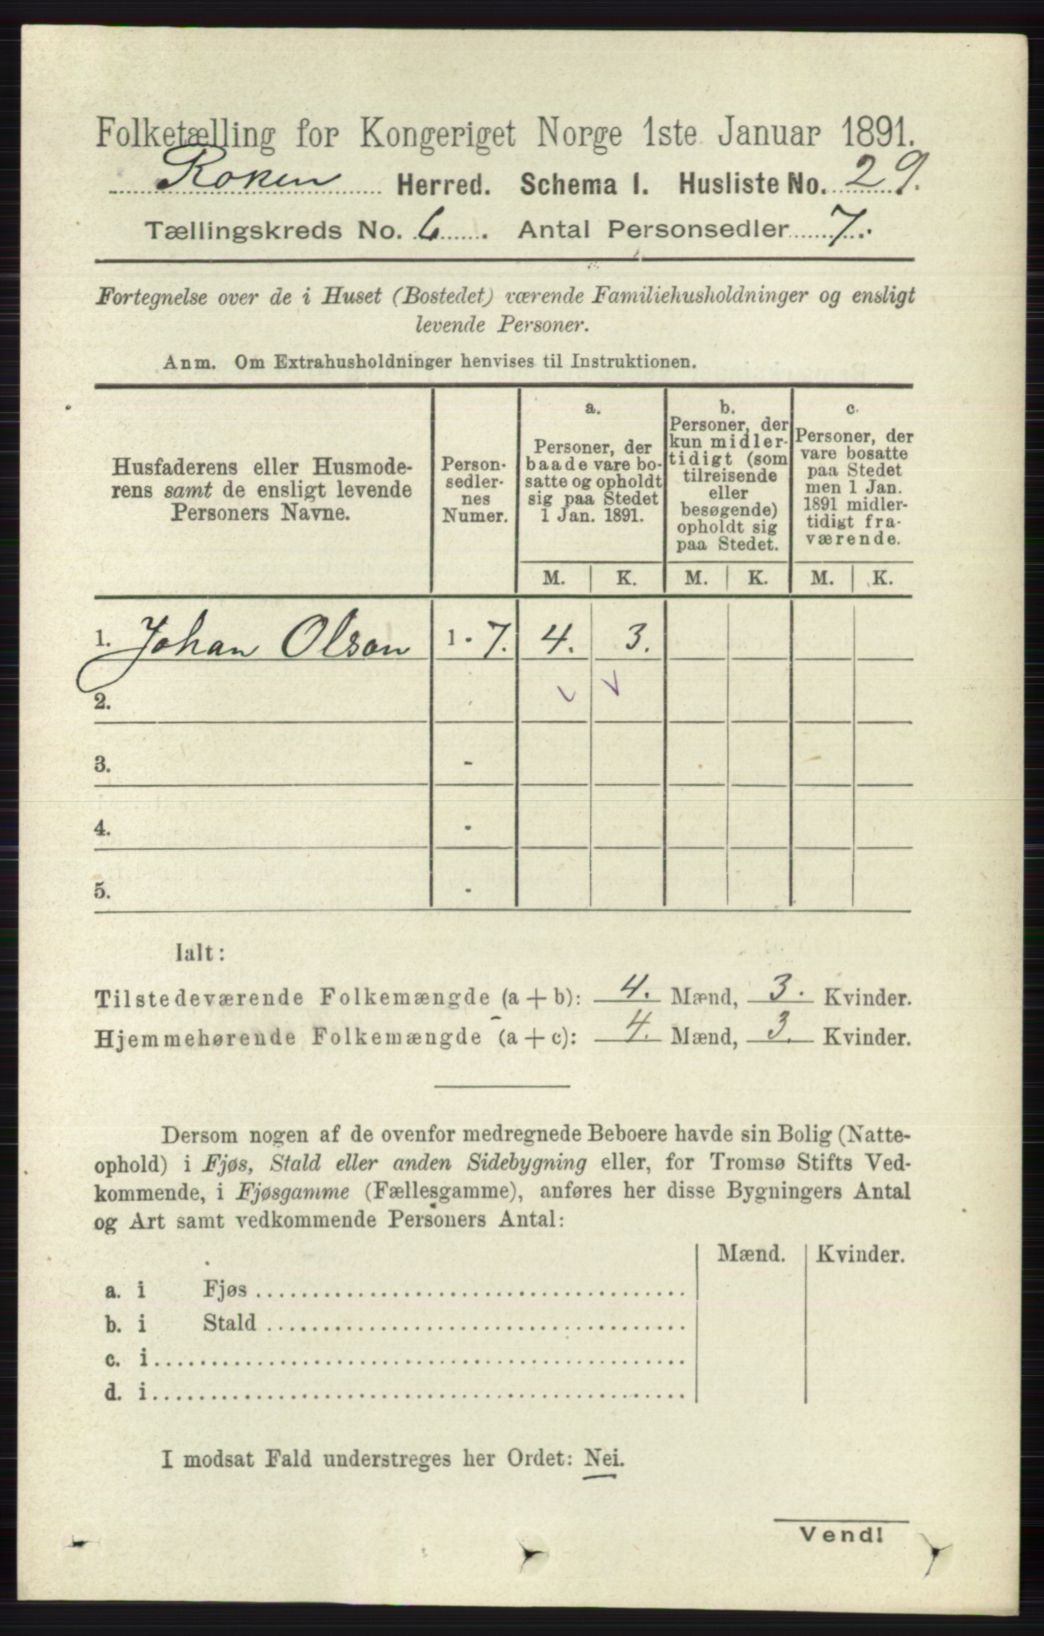 Folketælling for Kongeriget Norge 1ste Januar 1891.
Roken Herred. Schema I. Husliste No. 29.
Tællingskreds No. 6. Antal Personsedler 7.
Fortegnelse over de i Huset (Bostedet) værende Familiehusholdninger og ensligt
levende Personer.
Anm. Om Extrahusholdninger henvises til Instruktionen.
Husfaderens eller Husmode-
rens samt de ensligt levende
Personers Navne.
Person-
sedler-
nes
Numer.
a.
Personer, der
baade vare bo-
satte og opholdt
sig paa Stedet
1 Jan. 1891.
b.
Personer, der
kun midler-
tidigt (som
tilreisende
eller
besøgende)
opholdt sig
paa Stedet.
c.
Personer, der
vare bosatte
paa Stedet
men 1 Jan.
1891 midler-
tidigt fra-
værende.
M. K. M. K. M. K.
1. Johan Olson 1 - 7. 4. 3.
2.
3. -
4. -
5. -
Ialt:
Tilstedeværende Folkemængde (a + b): 4. Mænd, 3. Kvinder.
Hjemmehørende Folkemængde (a + c): 4. Mænd, 3. Kvinder.
Dersom nogen af de ovenfor medregnede Beboere havde sin Bolig (Natte-
ophold) i Fjøs, Stald eller anden Sidebygning eller, for Tromsø Stifts Ved-
kommende, i Fjøsgamme (Fællesgamme), anføres her disse Bygningers Antal
og Art samt vedkommende Personers Antal:
Mænd. Kvinder.
a. i Fjøs
b. i Stald
c. i
d. i
I modsat Fald understreges her Ordet: Nei.
Vend!